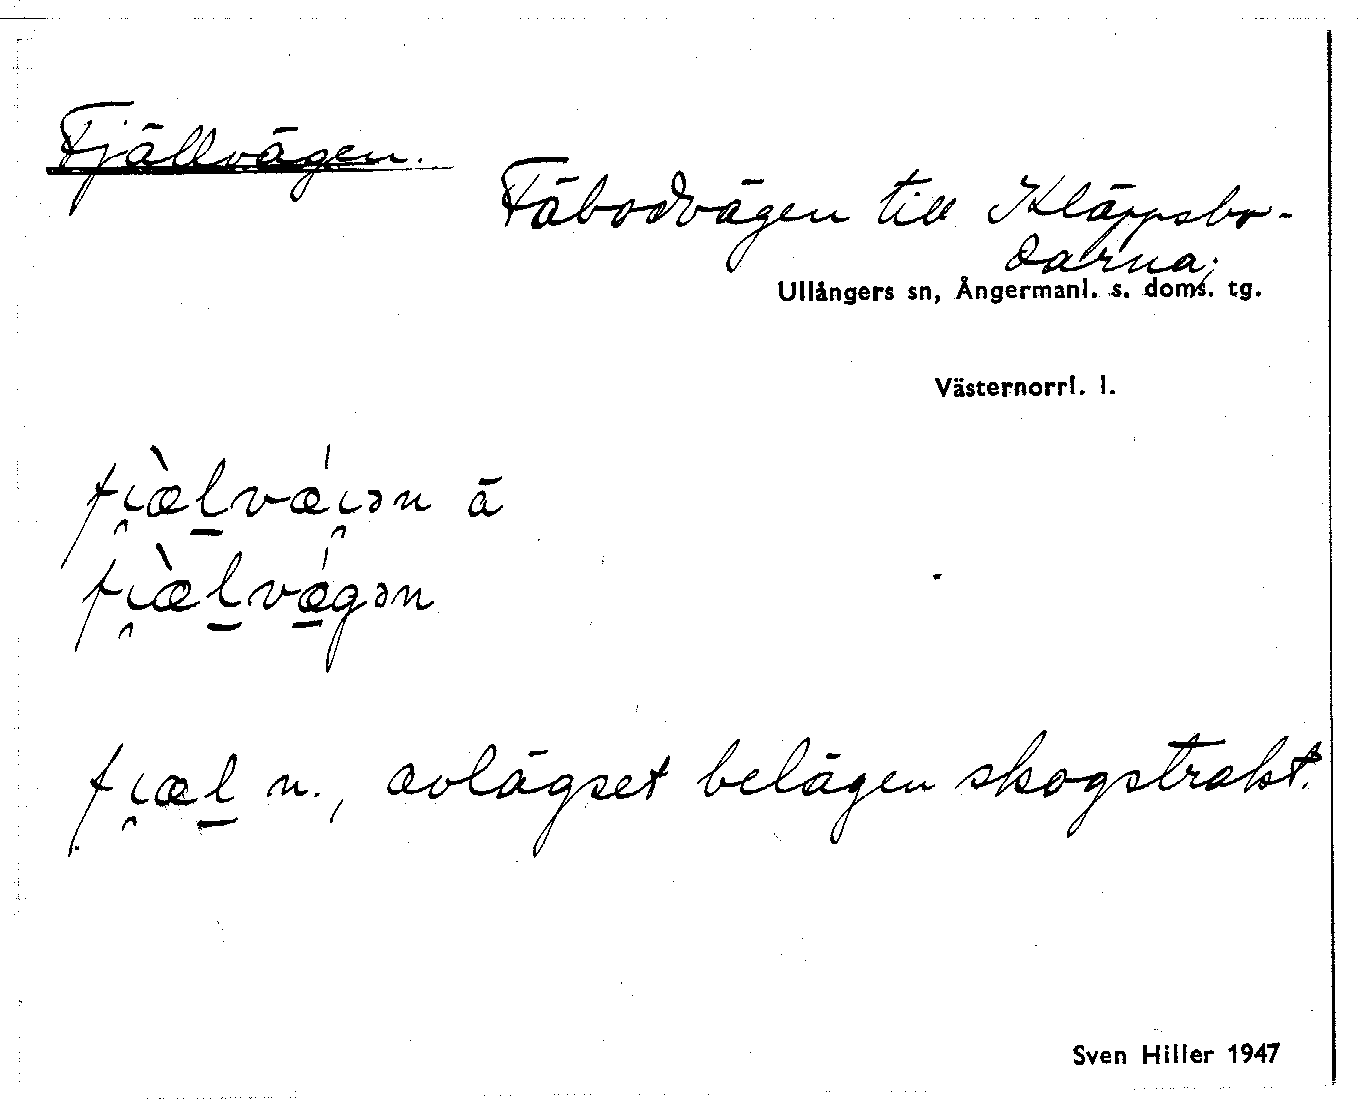 Fjällvägen.
Fäbodvägen till Kläppsbo-
darna;
Ullångers sn, Ångermanl. s. doms. tg.
Västernorrl. l.
fi̯æ̀l̠vǽi̯ən ä
fi̯æ̀l̠vǽ̠gən
fi̯æl̠ n., avlägset belägen skogstrakt.
Sven Hiller 1947